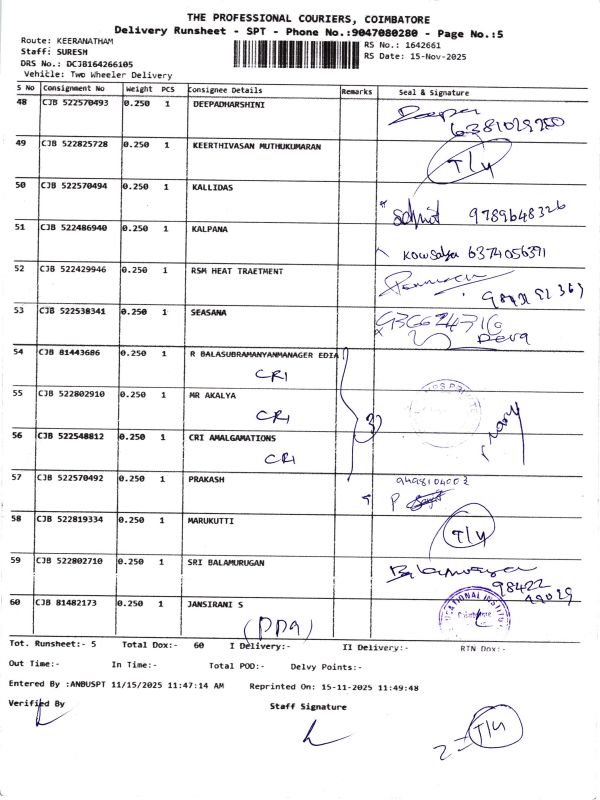 THE PROFESSIONAL COURIERS, COIMBATORE
Delivery Runsheet - SPT - Phone No.:9047080280 - Page No.:5
Route: KEERANATHAM
RS No.: 1642661
Staff: SURESH
RS Date: 15-Nov-2025
DRS No.: DCJB164266105
Vehicle: Two Wheeler Delivery
S No Consignment No Weight PCS Consignee Details Remarks Seal & Signature
48 CJB 522570493 0.250 1 DEEPADHARSHINI
6381029250
49 CJB 522825728 0.250 1 KEERTHIVASAN MUTHUKUMARAN
T/4
50 CJB 522570494 0.250 1 KALLIDAS
9789648326
51 CJB 522486940 0.250 1 KALPANA
Kowsalya 6374056371
52 CJB 522429946 0.250 1 RSM HEAT TRAETMENT
53 CJB 522538341 0.250 1 SEASANA
Deva
54 CJB 81443686 0.250 1 R BALASUBRAMANYANMANAGER EDIA
CRI
55 CJB 522802910 0.250 1 MR AKALYA
CRI
3
56 CJB 522548812 0.250 1 CRI AMALGAMATIONS
CRI
57 CJB 522570492 0.250 1 PRAKASH
P.
58 CJB 522819334 0.250 1 MARUKUTTI
T/4
59 CJB 522802710 0.250 1 SRI BALAMURUGAN
98422
60 CJB 81482173 0.250 1 JANSIRANI S
Tot. Runsheet:- 5 Total Dox:- 60 I Delivery:- II Delivery:- RTN Dox:-
Out Time:- In Time:- Total POD:- Delvy Points:-
Entered By :ANBUSPT 11/15/2025 11:47:14 AM Reprinted On: 15-11-2025 11:49:48
Verified By Staff Signature
2 = T/4